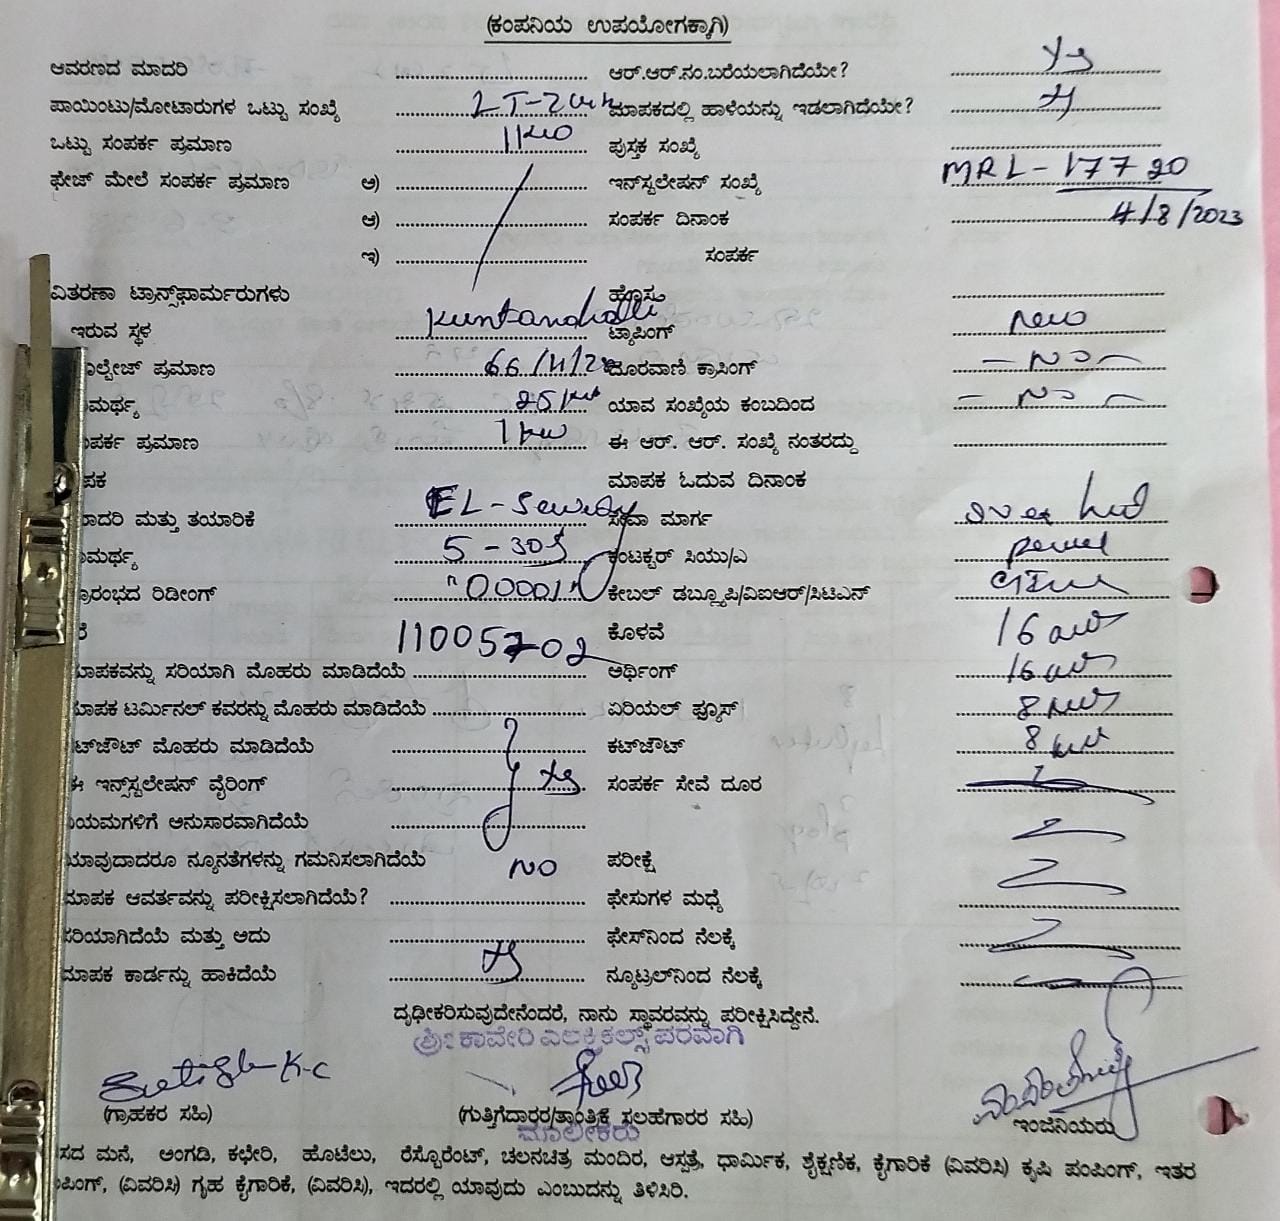 (ಕಂಪನಿಯ ಉಪಯೋಗಕ್ಕಾಗಿ)
ಆವರಣದ ಮಾದರಿ ಆರ್.ಆರ್.ನಂ.ಬರೆಯಲಾಗಿದೆಯೇ?
ಪಾಯಿಂಟು/ಮೋಟಾರುಗಳ ಒಟ್ಟು ಸಂಖ್ಯೆ ಮಾಪಕದಲ್ಲಿ ಹಾಳೆಯನ್ನು ಇಡಲಾಗಿದೆಯೇ?
ಒಟ್ಟು ಸಂಪರ್ಕ ಪ್ರಮಾಣ 1kw ಪುಸ್ತಕ ಸಂಖ್ಯೆ
ಫೇಜ್ ಮೇಲೆ ಸಂಪರ್ಕ ಪ್ರಮಾಣ ಅ) ಇನ್‌ಸ್ಟಲೇಷನ್ ಸಂಖ್ಯೆ MRL-17720
ಆ) ಸಂಪರ್ಕ ದಿನಾಂಕ 4/8/2023
ಇ) ಸಂಪರ್ಕ
ವಿತರಣಾ ಟ್ರಾನ್ಸ್‌ಫಾರ್ಮರುಗಳು ಹೊಸ
ಇರುವ ಸ್ಥಳ Kuntanahalli ಟ್ಯಾಪಿಂಗ್ new
ಾಲ್ಟೇಜ್ ಪ್ರಮಾಣ 66/11/ ದೂರವಾಣಿ ಕ್ರಾಸಿಂಗ್ - NO -
ಮರ್ಥ್ಯ 25 ಯಾವ ಸಂಖ್ಯೆಯ ಕಂಬದಿಂದ - NO -
ಪರ್ಕ ಪ್ರಮಾಣ 1kw ಈ ಆರ್. ಆರ್. ಸಂಖ್ಯೆ ನಂತರದ್ದು
ಪಕ ಮಾಪಕ ಓದುವ ದಿನಾಂಕ
ಾದರಿ ಮತ್ತು ತಯಾರಿಕೆ EL- ಸೇವಾ ಮಾರ್ಗ over
ಾಮರ್ಥ್ಯ 5-30 ಕಂಟಕ್ಟರ್ ಸಿಯು/ಎ
್ರಾರಂಭದ ರಿಡೀಂಗ್ "00001" ಕೇಬಲ್ ಡಬ್ಲ್ಯೂಪಿ/ವಿಐಆರ್/ಸಿಟಿಎನ್
ರೆ 11005702 ಕೊಳವೆ 16
ಮಾಪಕವನ್ನು ಸರಿಯಾಗಿ ಮೊಹರು ಮಾಡಿದೆಯೆ ಆರ್ಥಿಂಗ್ 16
ಮಾಪಕ ಟರ್ಮಿನಲ್ ಕವರನ್ನು ಮೊಹರು ಮಾಡಿದೆಯೆ ಏರಿಯಲ್ ಫ್ಯೂಸ್ 8
ಟ್‌ಔಟ್ ಮೊಹರು ಮಾಡಿದೆಯೆ ಕಟ್‌ಔಟ್ 8
ಈ ಇನ್ಸ್‌ಸ್ಟಲೇಷನ್ ವೈರಿಂಗ್ ಸಂಪರ್ಕ ಸೇವೆ ದೂರ
ಿಯಮಗಳಿಗೆ ಅನುಸಾರವಾಗಿದೆಯೆ
ಯಾವುದಾದರೂ ನ್ಯೂನತೆಗಳನ್ನು ಗಮನಿಸಲಾಗಿದೆಯೆ NO ಪರೀಕ್ಷೆ
ಮಾಪಕ ಆವರ್ತವನ್ನು ಪರೀಕ್ಷಿಸಲಾಗಿದೆಯೆ? ಫೇಸುಗಳ ಮಧ್ಯೆ
ಸರಿಯಾಗಿದೆಯೆ ಮತ್ತು ಅದು ಫೇಸ್‌ನಿಂದ ನೆಲಕ್ಕೆ
ಮಾಪಕ ಕಾರ್ಡನ್ನು ಹಾಕಿದೆಯೆ ನ್ಯೂಟ್ರಲ್‌ನಿಂದ ನೆಲಕ್ಕೆ
ದೃಢೀಕರಿಸುವುದೇನೆಂದರೆ, ನಾನು ಸ್ಥಾವರವನ್ನು ಪರೀಕ್ಷಿಸಿದ್ದೇನೆ.
ಶ್ರೀ ಕಾವೇರಿ ಎಲೆಕ್ಟ್ರಿಕಲ್ಸ್ ಪರವಾಗಿ
(ಗ್ರಾಹಕರ ಸಹಿ) (ಗುತ್ತಿಗೆದಾರರ/ತಾಂತ್ರಿಕ ಸಲಹೆಗಾರರ ಸಹಿ) ಇಂಜಿನಿಯರು
ಮಾಲೀಕರು
ಸದ ಮನೆ, ಅಂಗಡಿ, ಕಛೇರಿ, ಹೊಟೆಲು, ರೆಸ್ಟೊರೆಂಟ್, ಚಲನಚಿತ್ರ ಮಂದಿರ, ಆಸ್ಪತ್ರೆ, ಧಾರ್ಮಿಕ, ಶೈಕ್ಷಣಿಕ, ಕೈಗಾರಿಕೆ (ವಿವರಿಸಿ) ಕೃಷಿ ಪಂಪಿಂಗ್, ಇತರ
ಪಿಂಗ್, (ವಿವರಿಸಿ) ಗೃಹ ಕೈಗಾರಿಕೆ, (ವಿವರಿಸಿ), ಇದರಲ್ಲಿ ಯಾವುದು ಎಂಬುದನ್ನು ತಿಳಿಸಿರಿ.